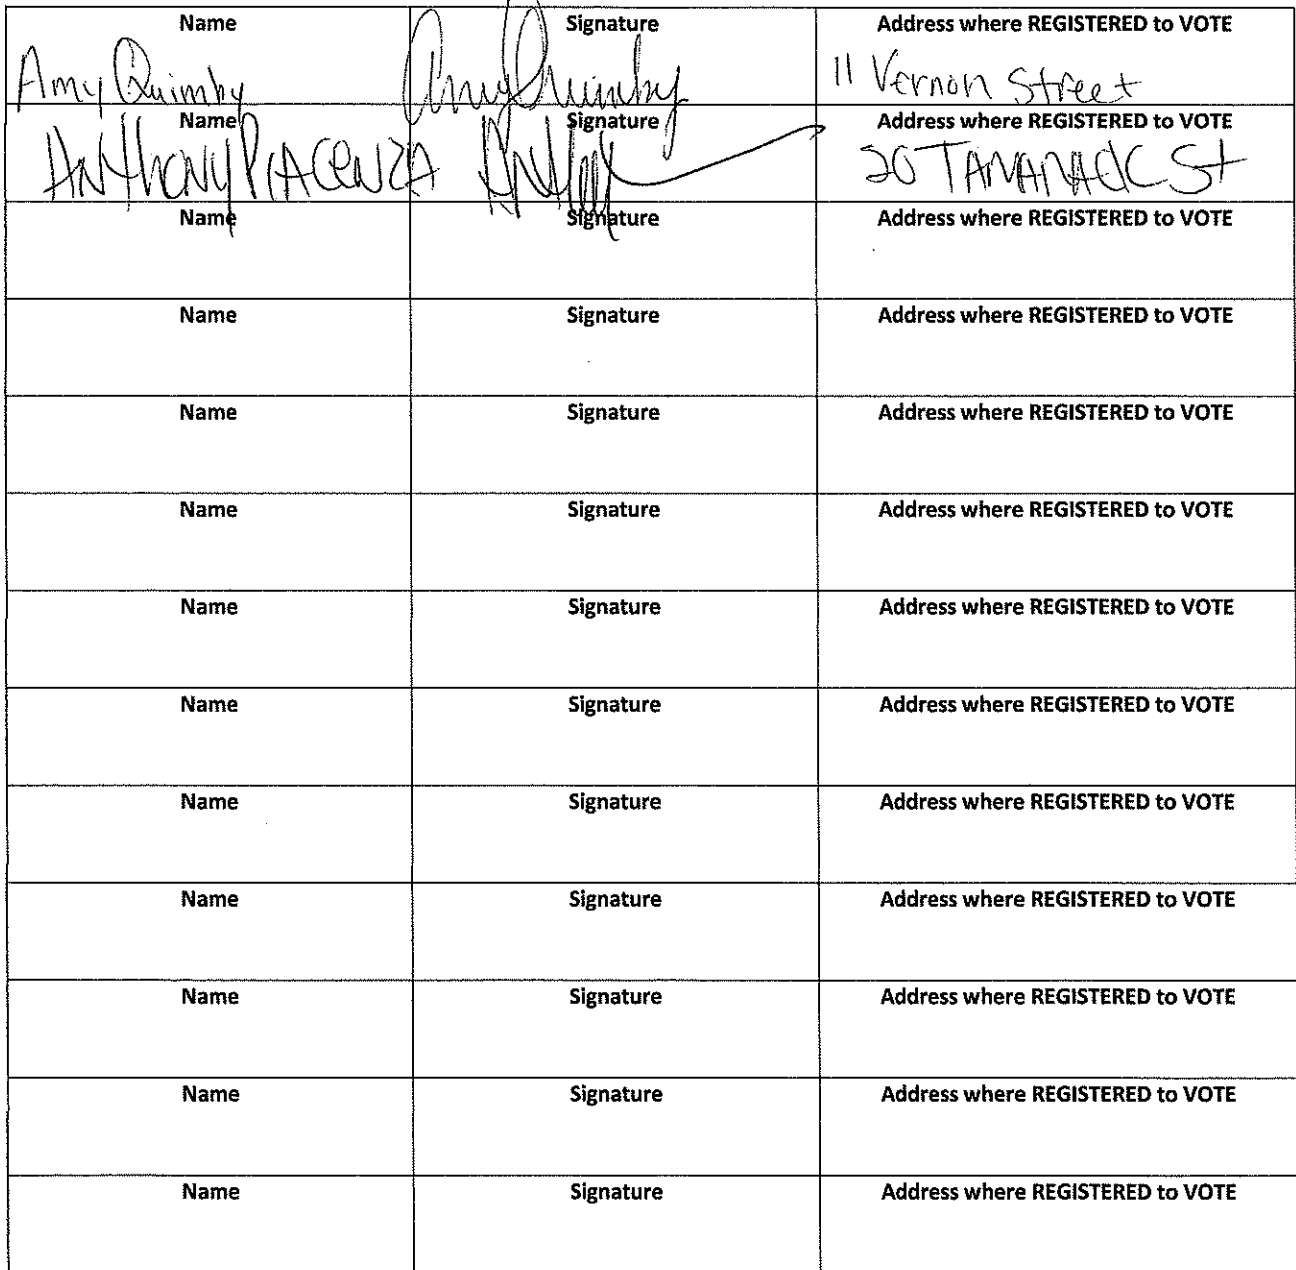 Name Signature Address where REGISTERED to VOTE
Amy Quimby Amy Quimby 11 Vernon Street
Name Signature Address where REGISTERED to VOTE
ANthony PIACENZA 20 St
Name Signature Address where REGISTERED to VOTE
Name Signature Address where REGISTERED to VOTE
Name Signature Address where REGISTERED to VOTE
Name Signature Address where REGISTERED to VOTE
Name Signature Address where REGISTERED to VOTE
Name Signature Address where REGISTERED to VOTE
Name Signature Address where REGISTERED to VOTE
Name Signature Address where REGISTERED to VOTE
Name Signature Address where REGISTERED to VOTE
Name Signature Address where REGISTERED to VOTE
Name Signature Address where REGISTERED to VOTE